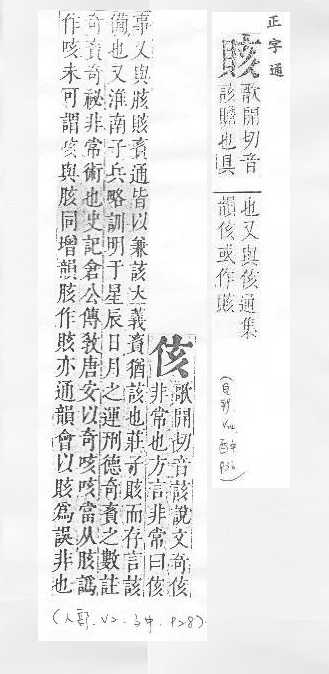 正字通
賅
歌開切音
該贍也具
也又與侅通集
韻侅或作賅
侅
歌開切音該說文奇侅
非常也方言非常曰侅
事又與胲賅賌通皆以兼該大義賌猶該也莊子賅而存言該
備也又淮南子兵略訓明于星辰日月之運刑德奇賌之數註
奇賌奇祕非常術也史記倉公傳敎唐安以奇咳咳當从胲譌
作咳未可謂侅與胲同增韻胲作賅亦通韻會以賅爲誤非也
(人部. V2. 子中. P28)